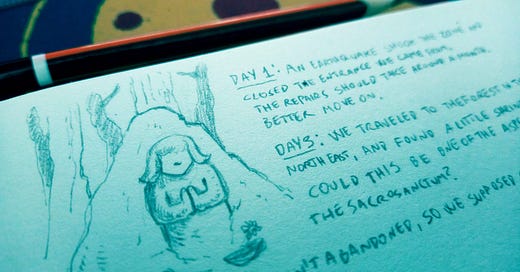 DAY 1: AN EARTHQUAKE SHOOK THE ZONE AND
CLOSED THE ENTRANCE WE CAME FROM,
THE REPAIRS SHOULD TAKE AROUND A MONTH.
BETTER MOVE ON.
DAY 3: WE TRAVELED TO THE FOREST IN
NORTHEAST, AND FOUND A LITTLE
COULD THIS BE ONE OF THE
THE SACROSANCTUM?
ABANDONED, SO WE SUPPOSED